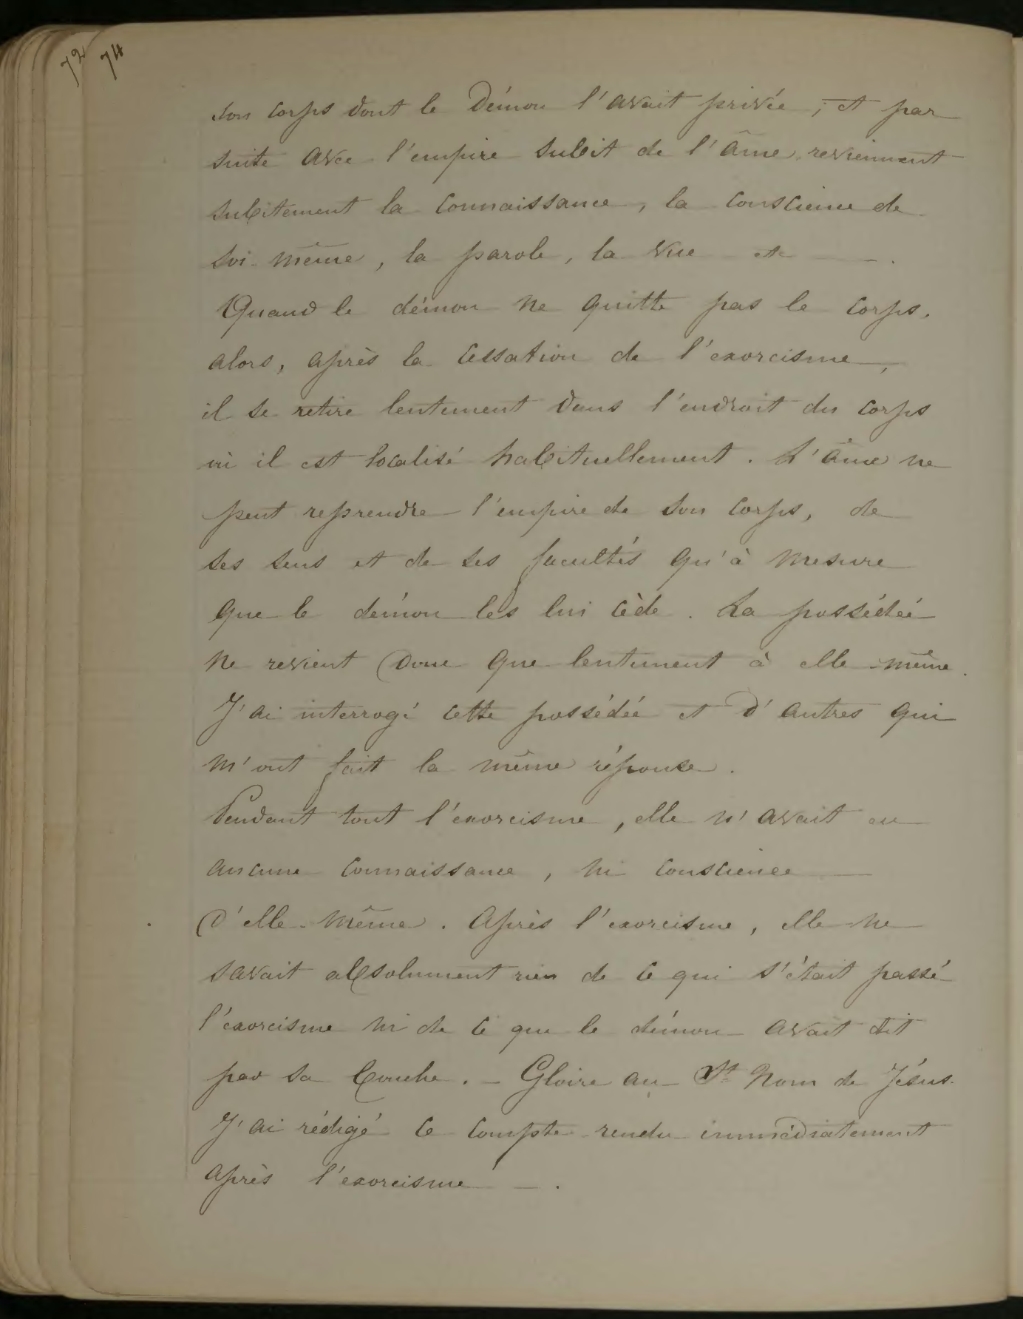 72 74
son corps dont le Démon l'avait privée, et par
suite avec l'empire subit de l'âme, reviennent
subitement la connaissance, la conscience de
soi-même, la parole, la vue etc — .
Quand le démon ne quitte pas le corps,
alors, après la cessation de l'exorcisme,
il se retire lentement dans l'endroit du corps
où il est localisé habituellement. L'âme ne
peut reprendre l'empire de son corps, de
ses sens et de ses facultés qu'à mesure
que le démon les lui cède. La possédée
ne revient donc que lentement à elle-même.
J'ai interrogé cette possédée et d'autres qui
m'ont fait la même réponse.
Pendant tout l'exorcisme, elle n'avait eu
aucune connaissance, ni conscience
d'elle-même. Après l'exorcisme, elle ne
savait absolument rien de ce qui s'était passé
l'exorcisme ni de ce que le démon avait dit
par sa bouche. — Gloire au St Nom de Jésus.
J'ai rédigé ce compte-rendu immédiatement
après l'exorcisme — .